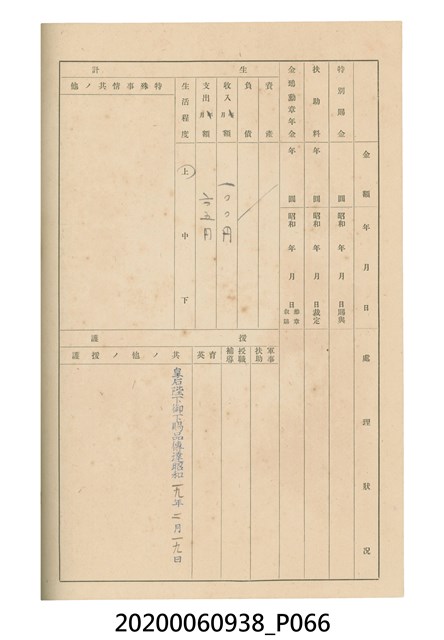 金額 年月日 處理狀況
特別賜金 圓 昭和 年 月 日賜與
扶助料 年 圓 昭和 年 月 日裁定
金鵄勳章年金 年 圓 昭和 年 月 日
生計
資產
負債
收入 月 額 一〇〇円
支出 月 額 六五円
生活程度 上 中 下
特殊事情其ノ他
援護
軍事扶助
授職補導
育英
其ノ他ノ援護
皇后陛下御下賜品傳達昭和一九年二月一九日
20200060938_P066